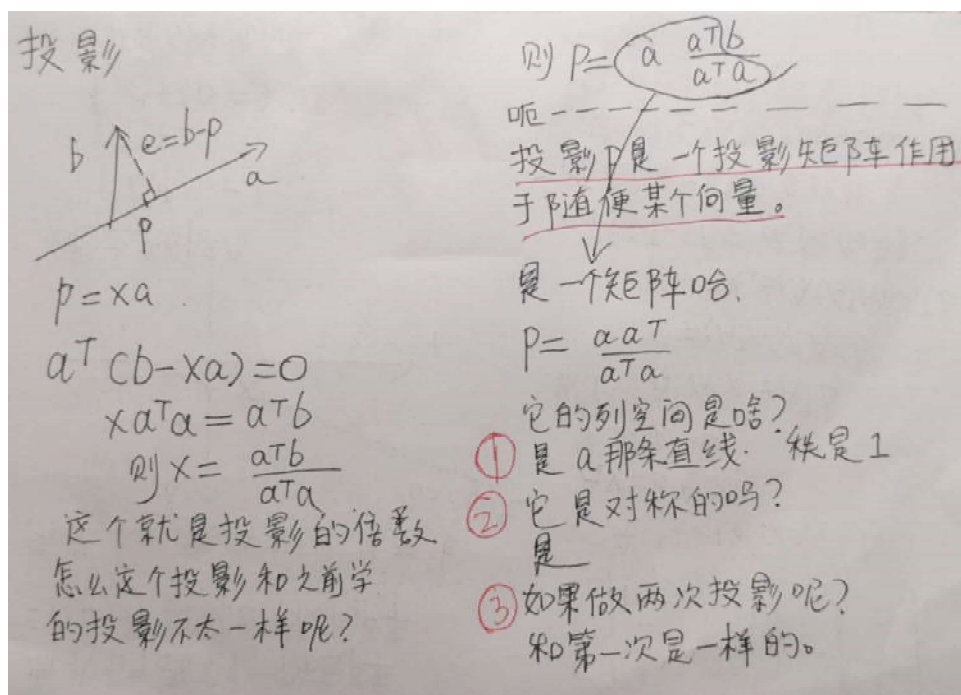 投影
b
e=b-p
a
p
p=xa
aᵀ(b-xa)=0
xaᵀa=aᵀb
则 x= aᵀb/aᵀa
这个就是投影的倍数
怎么这个投影和之前学
的投影不太一样呢?
则 P= a aᵀb/aᵀa
呃
投影P是一个投影矩阵作用
于随便某个向量。
是一个矩阵哈.
P= aaᵀ/aᵀa
它的列空间是啥?
① 是a那条直线. 秩是1
② 它是对称的吗?
是
③ 如果做两次投影呢?
和第一次是一样的。